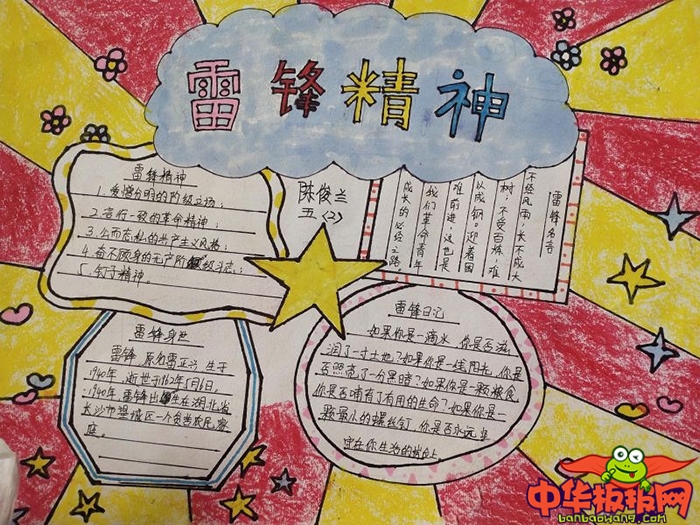 雷锋精神
雷锋精神
1. 爱憎分明的阶级立场;
2. 言行一致的革命精神;
3. 公而忘私的共产主义风格;
4. 奋不顾身的无产阶级斗志;
5. 钉子精神。
陈俊兰
五(2)
雷锋名言
不经风雨,长不成大
树,不受百炼,难
以成钢。迎着困
难前进,这也是
我们革命青年
成长的必经之路。
雷锋身世
雷锋 原名雷正兴 生于
1940年 逝世于162年8月6日,
1940年,雷锋出生在湖北省
长沙市望城区一个贫苦农民家
庭。
雷锋日记
如果你是一滴水 你是否滋
润了一寸土地?如果你是一线阳光,你是
否照亮了一分黑暗?如果你是一颗粮食
你是否哺育了有用的生命?如果你是一
颗最小的螺丝钉 你是否永远坚
守在你生活的岗位上
中华板报网
banbaowang.com